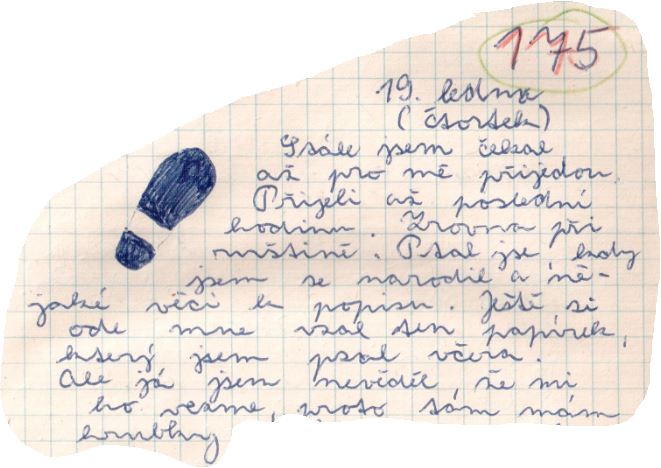 175
19. ledna
(čtvrtek)
Stále jsem čekal
až pro mě přijedou.
Přijeli až poslední
hodinu. Zrovna při
ruštině. Ptal se, kdy
jsem se narodil a ně-
jaké věci k popisu. Ještě si
ode mne vzal ten papírek,
který jsem psal včera.
Ale já jsem nevěděl, že mi
ho vezme, proto tam mám
hrubky